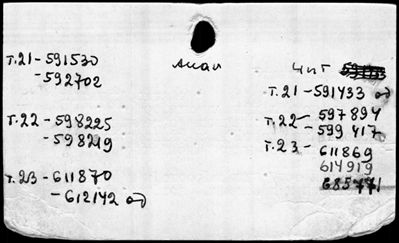 т.21 - 591530
- 592702
т.22 - 598225
- 598219
т.23 - 611870
- 612142
Чит
т.21 - 591433
т.22 - 597894
- 599417
т.23 - 611869
614919
685771